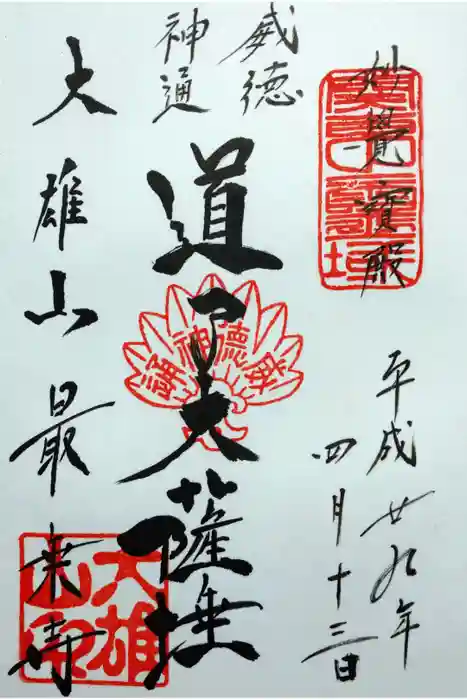 妙覺寳殿
平成廿九年
四月十三日
威德
神通
道了大薩埵
大雄山最乗寺
威德神通
大雄山印